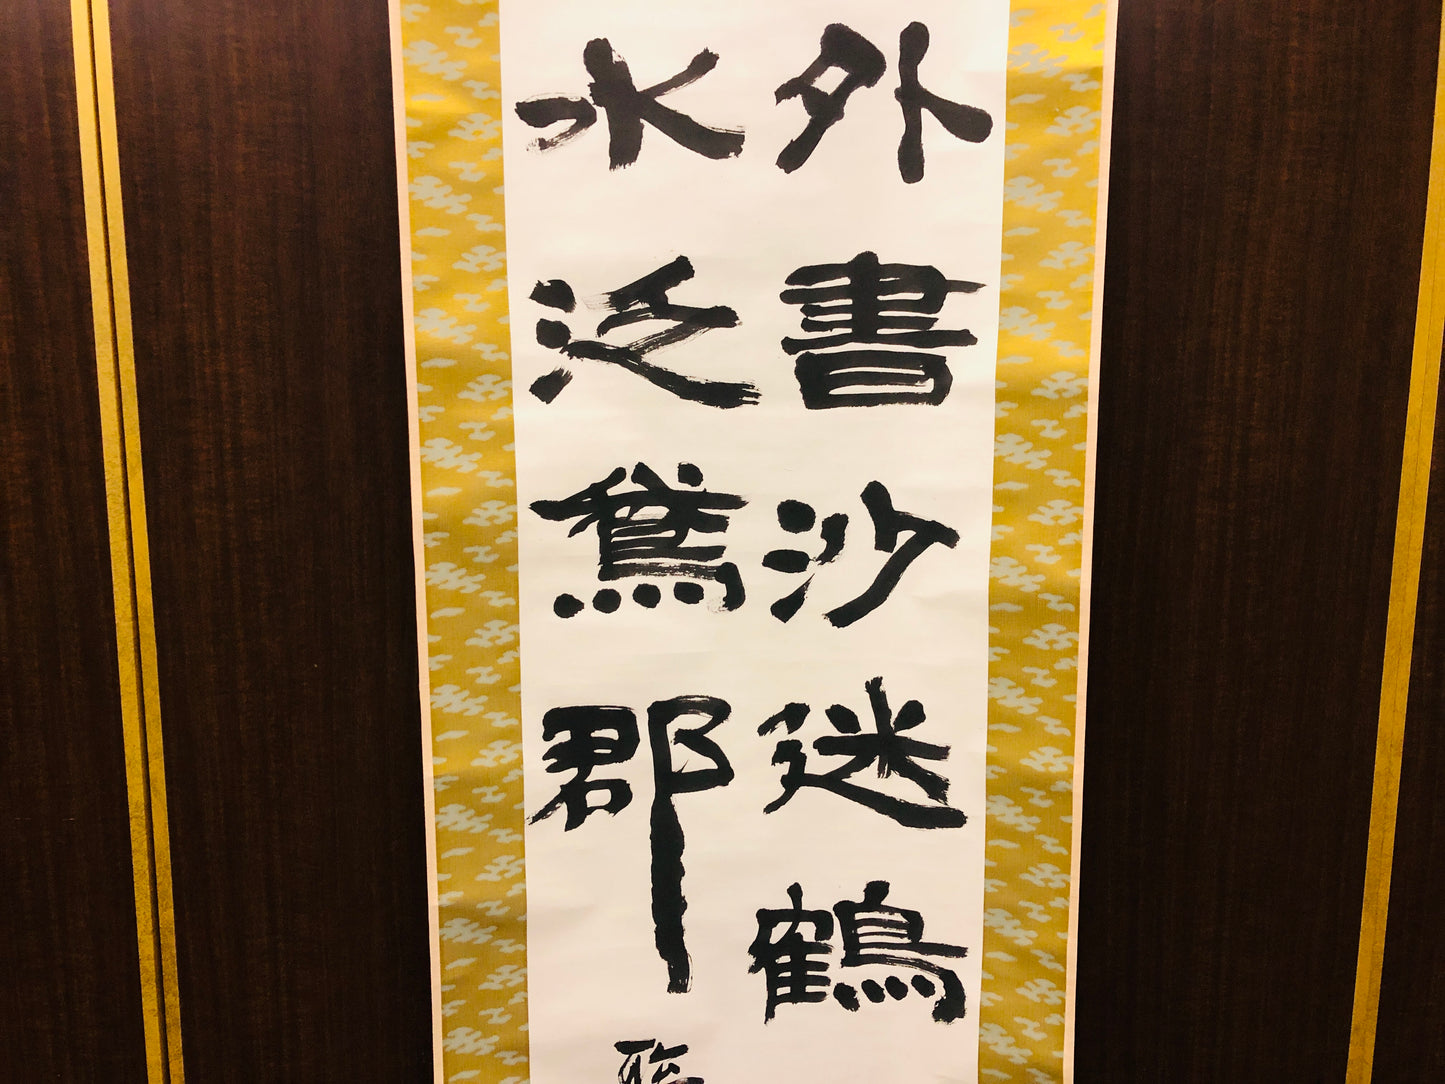 外書沙迷鶴
水泛鵞郡